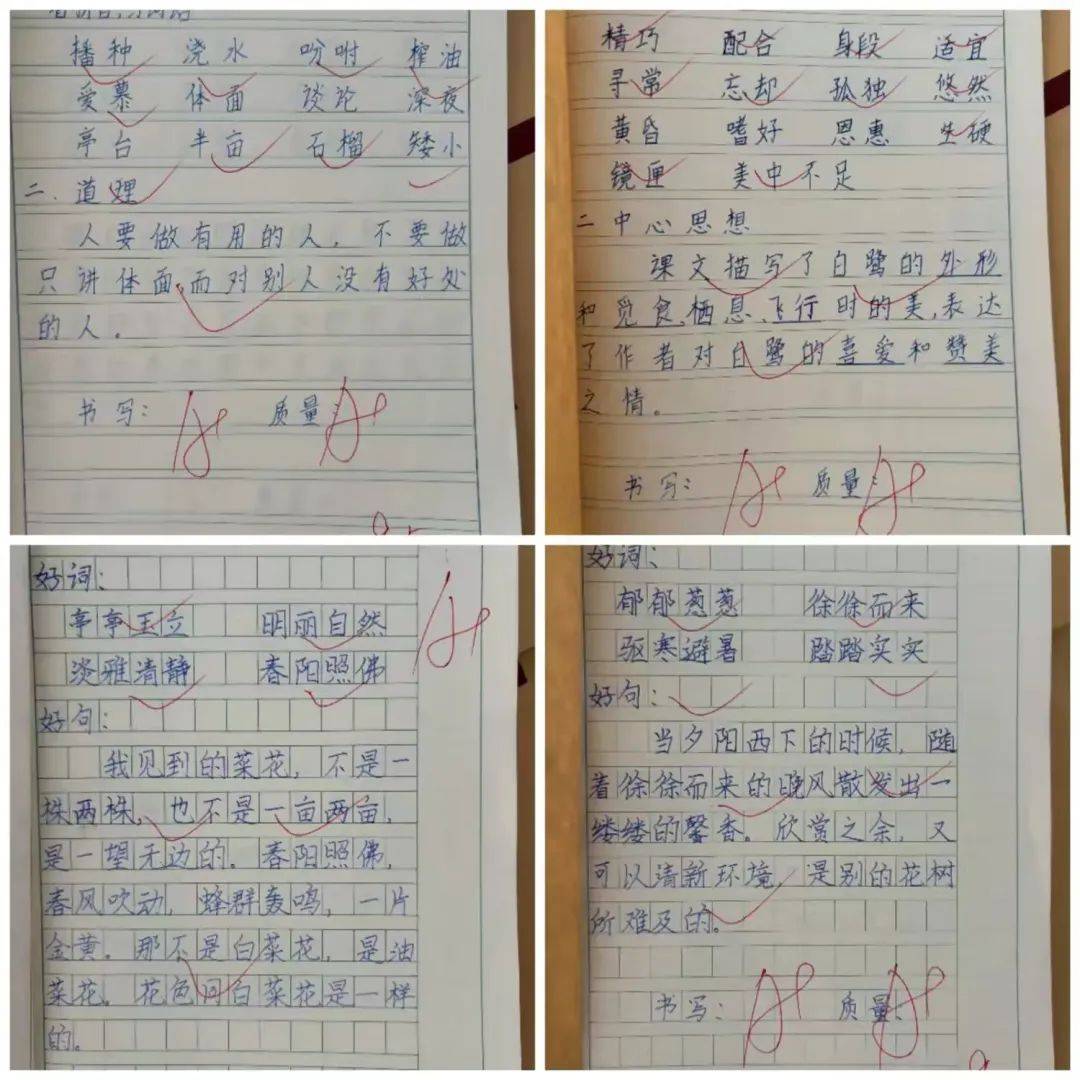 播种 浇水 吩咐 榨油
爱慕 体面 谈论 深夜
亭台 半亩 石榴 矮小
二.道理
人要做有用的人,不要做
只讲体面,而对别人没有好处
的人。
书写: A+ 质量: A+
精巧 配合 身段 适宜
寻常 忘却 孤独 悠然
黄昏 嗜好 恩惠 生硬
镜匣 美中不足
二中心思想
课文描写了白鹭的外形
和觅食、栖息、飞行时的美,表达
了作者对白鹭的喜爱和赞美
之情。
书写: A+ 质量: A+
好词:
亭亭玉立 明丽自然 A+
淡雅清静 春阳照佛
好句:
我见到的菜花,不是一
株两株,也不是一亩两亩,
是一望无边的。春阳照佛,
春风吹动,蜂群轰鸣,一片
金黄。那不是白菜花,是油
菜花。花色同白菜花是一样
的。
好词:
郁郁葱葱 徐徐而来
驱寒避暑 踏踏实实
好句:
当夕阳西下的时候,随
着徐徐而来的晚风散发出一
缕缕的馨香。欣赏之余,又
可以清新环境,是别的花树
所难及的。
书写: A+ 质量: A+